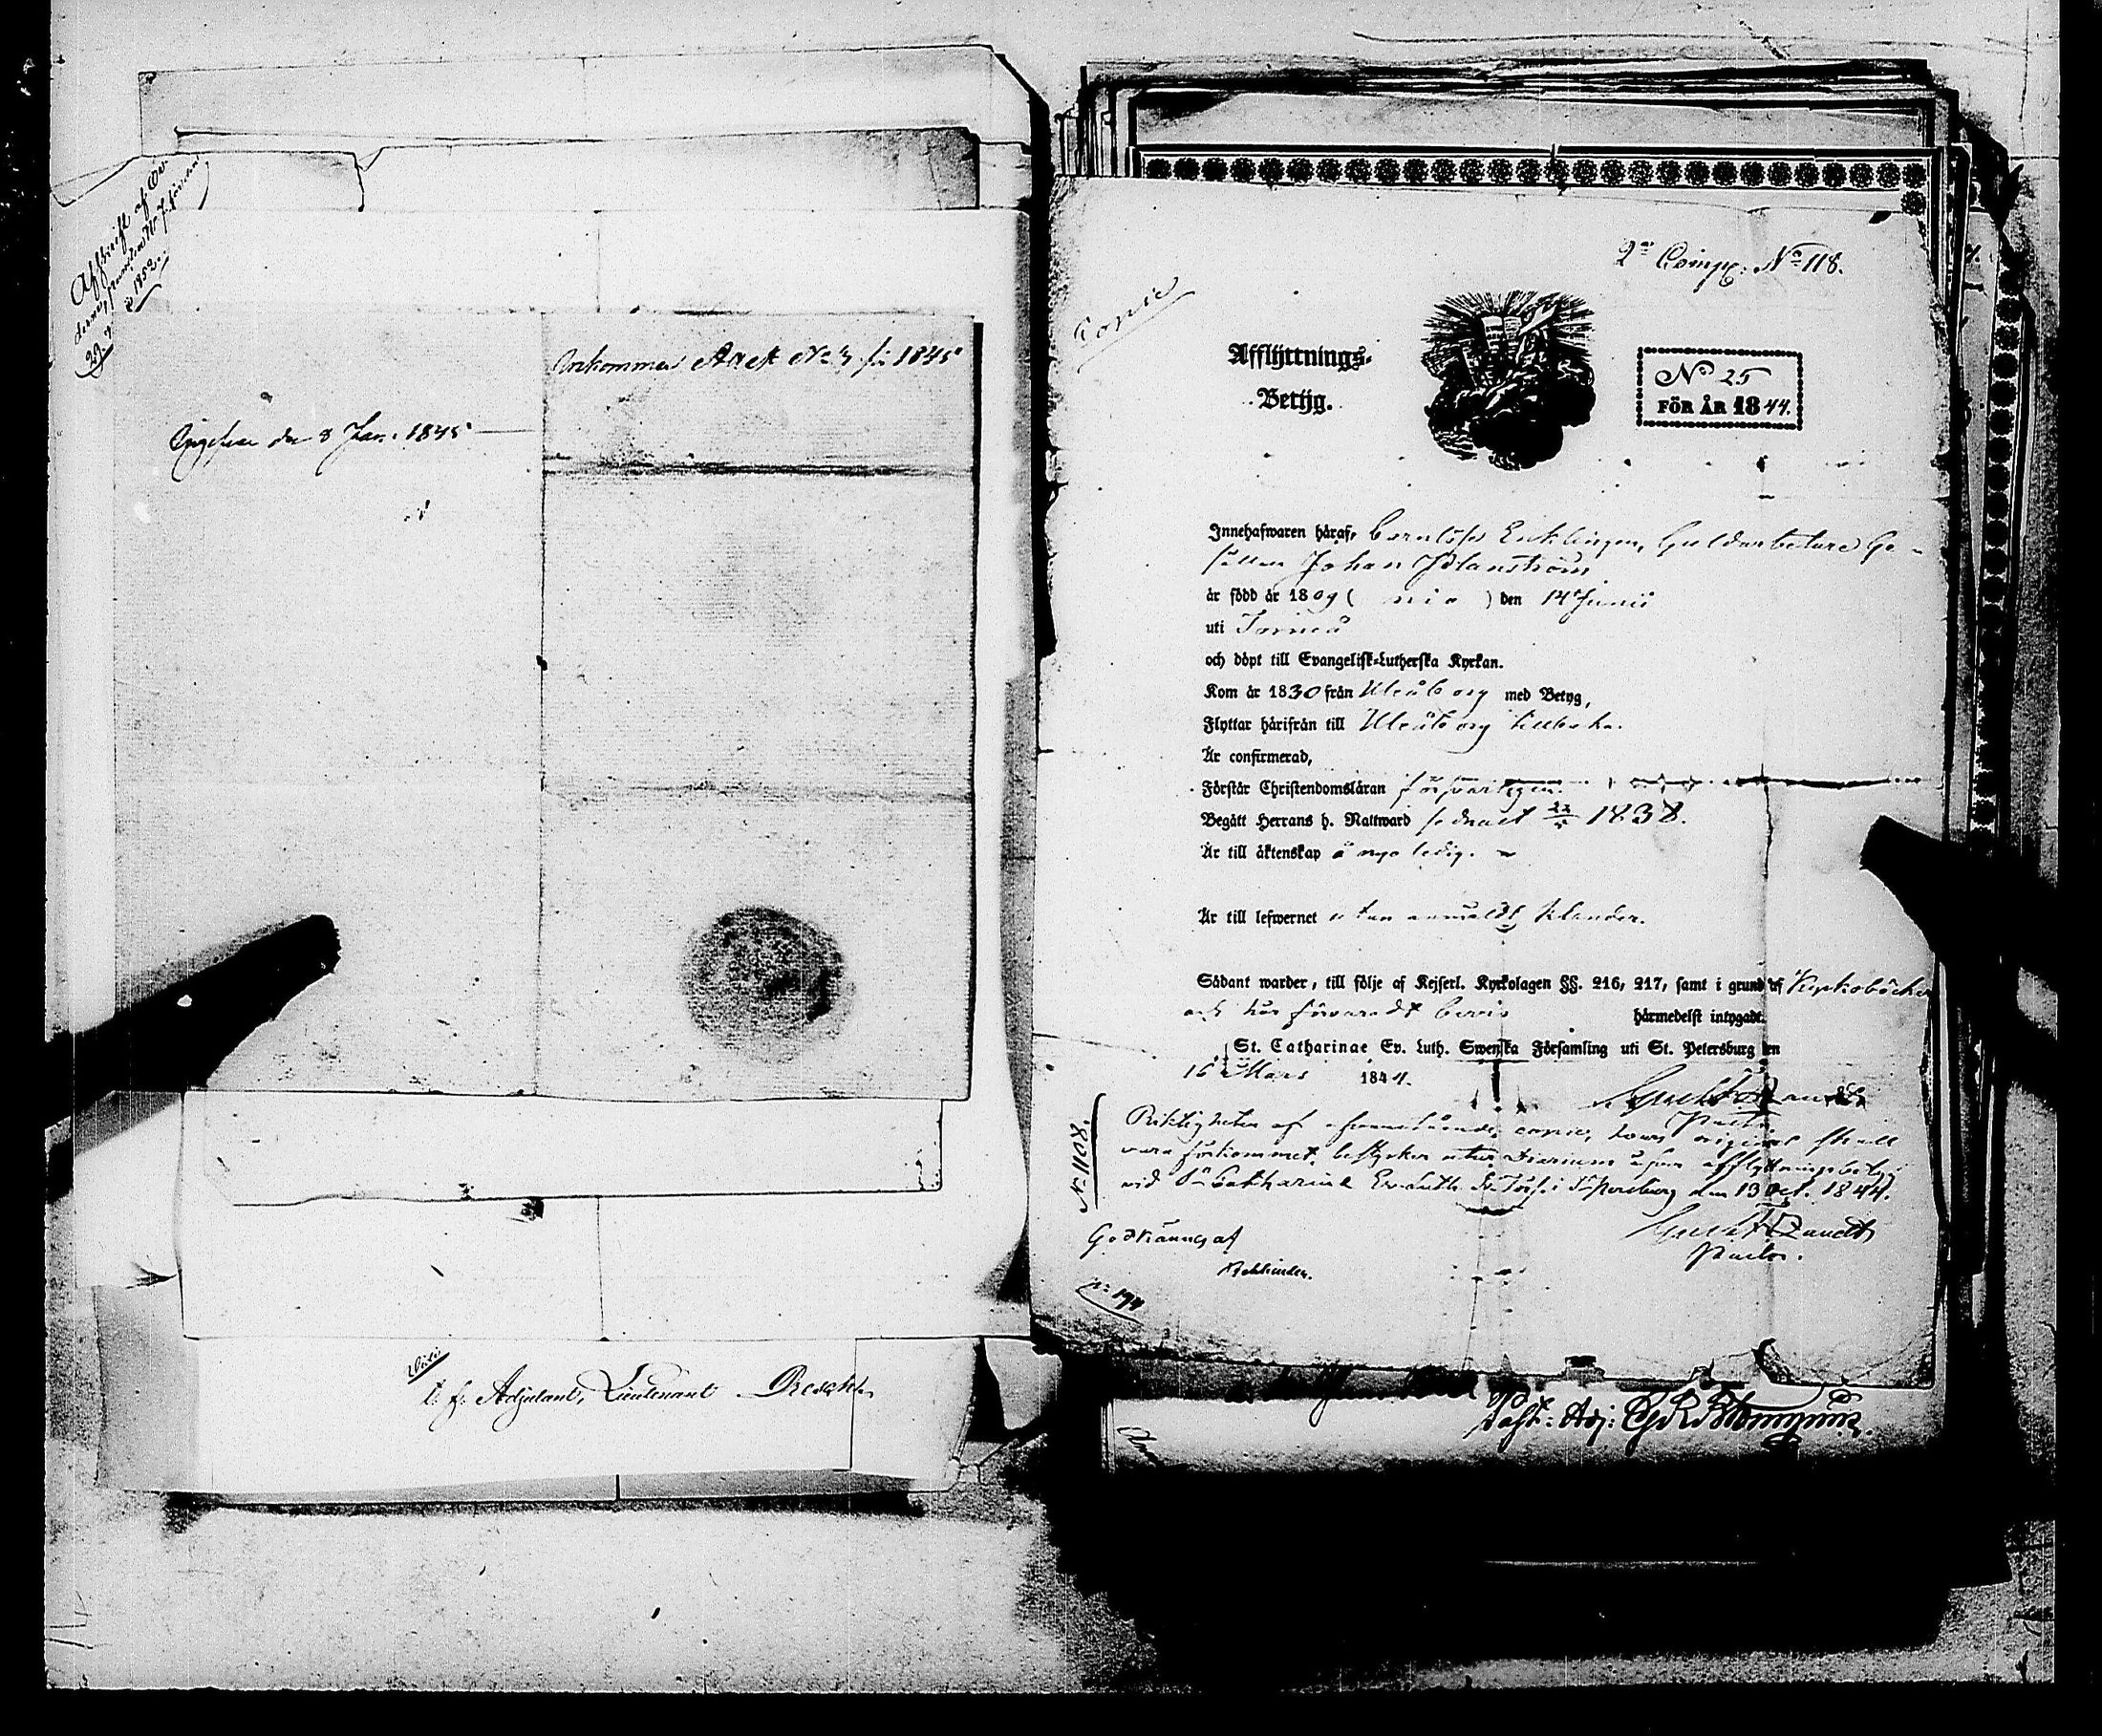 Afskrift af
1852
Inkommen Attest No 3 för 1845
den 8 Jan. 1845
t. f. Adjutant, Lieutenant
2a Comp. No 118.
Copie
Afflyttnings-
Betyg.
No 25
FÖR ÅR 1844.
Innehafwaren håraf, barnlöse Enklingen, Guldarbetare Ge-
sällen Johan
år född år 1809 ( nio ) den 14 Junii
uti Torneå
och döpt till Evangelisk-Lutherska Kyrkan.
Kom år 1830 från Uleåborg med Betyg,
Flyttar härifrån till Uleåborg tillbaka.
Är confirmerad,
Förstår Christendomsläran försvarligen.
Begått Herrans h. Nattward sednast 22/5 1838.
Är till äktenskap å nyo ledig.
Är till lefwernet utan anmäldt klander.
Sådant warder, till följe af Kejserl. Kyrkolagen §§. 216, 217, samt i grund af Kyrkoböcker
och här förvaradt bevis härmedelst intygadt.
St. Catharinae Ev. Luth. Swenska Församling uti St. Petersburg den
16 Mars 1844.
Pastor
No 1108.
Riktigheten af ofvanstående copie, hvars original skall
vara förkommet, bestyrkes utur Diarium öfver afflyttningsbetyg
vid St Catharine Ev. Luth. Sv. Förs. i St Petersburg den 13 Oct. 1844.
Pastor.
Godkännes af
No 194
Past: Adj: